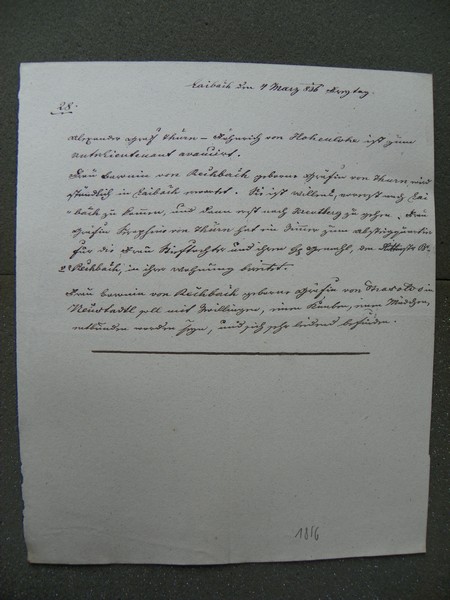 Laibach den 4 März 836 Freytag.
28.
Alexander Graf Thurn – Heinrich von Hohenlohe ist zum
Unterlieutenant avancirt.
Frau Baronin von Rechbach geborne Gräfin von Thurn wird
stündlich in Laibach erwartet. Sie ist willens, vorerst nach Lai-
bach zu kommen, und dann erst nach zu gehen. Frau
Gräfin von Thurn hat ein Zimmer zum Absteigquartier
für die Frau und ihren Gemahl, den
Rechbach, in ihrer Wohnung bereitet.
Frau Baronin von Rechbach geborne Gräfin von in
Neustadtl soll mit Zwillingen, einem Knaben, einem Mädchen,
entbunden worden seyn, und sich sehr leidend befinden.
1836